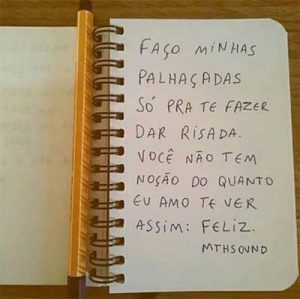 FAÇO MINHAS
PALHAÇADAS
SÓ PRA TE FAZER
DAR RISADA.
VOCÊ NÃO TEM
NOÇÃO DO QUANTO
EU AMO TE VER
ASSIM: FELIZ.
MTHSOUND